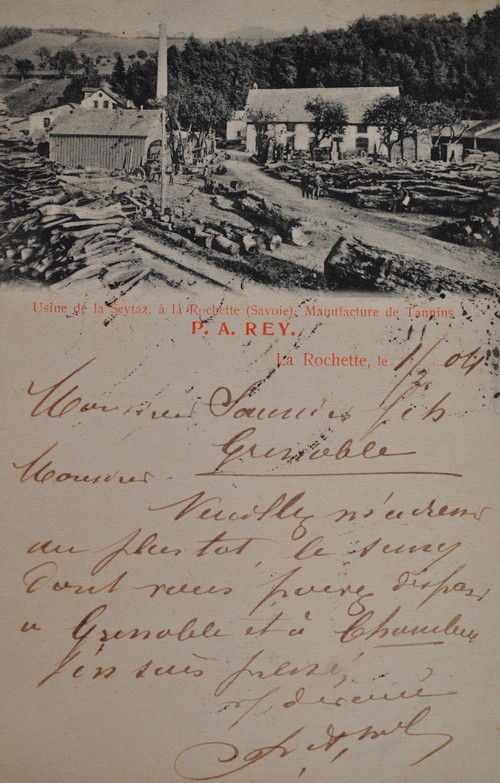 Usine de la Seytaz, à la Rochette (Savoie). Manufacture de Tannins
P. A. REY.
La Rochette, le 1/2 04
Monsieur Saunier fils
Grenoble
Monsieur
Veuillez m'adresser
au plus tôt, le sumac
dont vous pouvez disposer
à Grenoble et à Chambéry
j'en suis pressé,